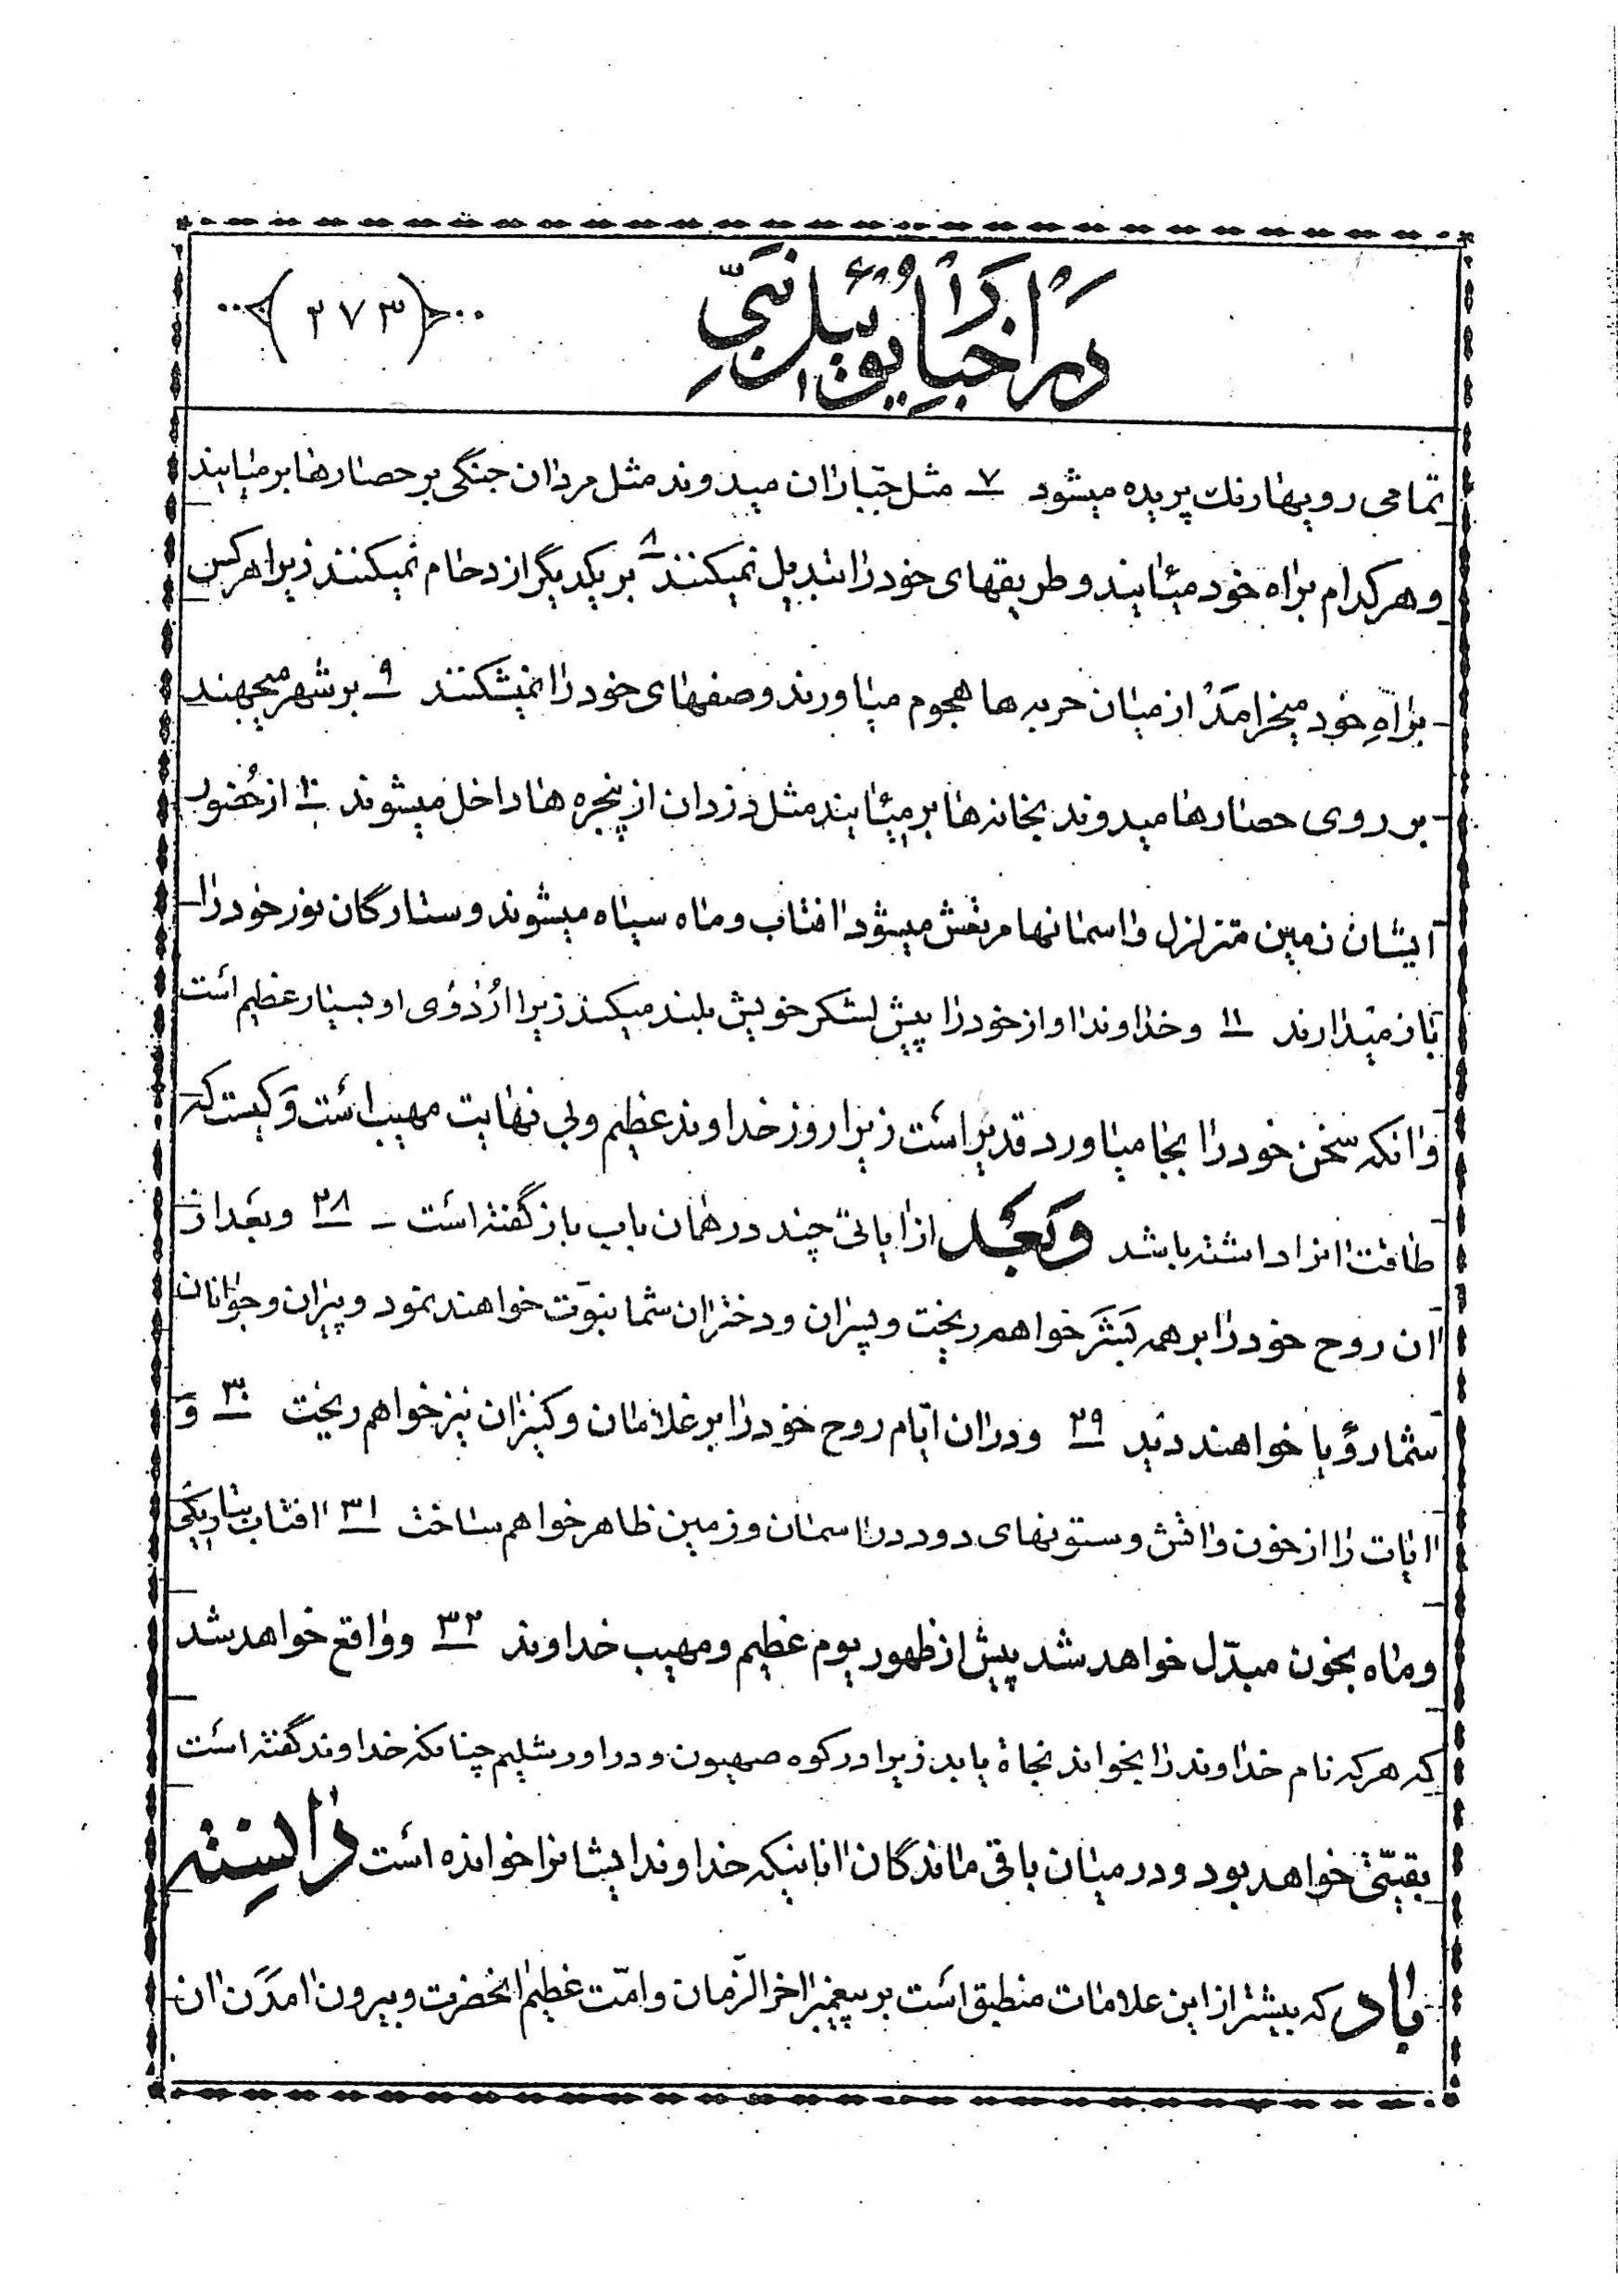 در اخبار یوئیل نبیّ
(۲۷۳)
تمامی رویها رنك پریده میشود ۷ مثل جبّاران میدوند مثل مردان جنگی بر حصارها بر میایند
و هر کدام براه خود میئایند و طریقهای خود را تبدیل نمیکنند ۸ بر یکدیگر ازدحام نمیکنند زیرا هرکس
براهِ خود میخرامَدْ از میان حربه ها هجوم میاورند و صفهای خود را نمیشکنند ۹ بر شهر میجهند
بر روی حصارها میدوند بخانه ها بر میئایند مثل دزدان از پنجره ها داخل میشوند ۱۰ از حُضور
ایشان زمین متزلزل و اسمانها مرتعش میشود افتاب و ماه سیاه میشوند و ستارگان نور خود را
باز میدارند ۱۱ و خداوند اواز خود را پیش لشکر خویش بلند میکند زیرا ارُدُوُی او بسیار عظیم است
و انکه سخن خود را بجا میاورد قدیر است زیرا روز خداوند عظیم و بی نهایت مهیب است وَ کیست که
طاقت انرا داشته باشد وبَعْد از ایاتیّ چند در همان باب باز گفته است ـ ۲۸ و بعد از
ان روح خود را بر همه بَشَر خواهم ریخت و پسران و دختران شما نبوّت خواهند نمود و پیران و جوانان
شما رؤیا خواهند دید ۲۹ و در ان ایّام روح خود را بر غلامان و کنیزان نیز خواهم ریخت ۳۰ وَ
ایات را از خون و اتش و ستونهای دود در اسمان و زمین ظاهر خواهم ساخت ۳۱ افتاب بتاریکی
و ماه بخون مبدّل خواهد شد پیش از ظهور یوم عظیم و مهیب خداوند ۳۲ و واقع خواهد شد
که هر که نام خداوند را بخواند نجاة یابد زیرا در کوه صهیون و در اورشلیم چنانکه خداوند گفته است
بقیّتی خواهد بود و در میان باقی ماندگان انانیکه خداوند ایشانرا خوانده است دانسته
باد که بیشتر از این علامات منطبق است بر پیغمبر اخر الزّمان و امّت عظیم انحضرت و بیرون امدَن ان